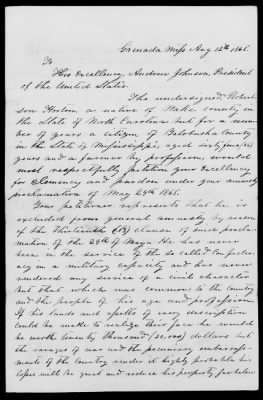 Grenada Miss Aug 12th 1865.
To
His Excellency, Andrew Johnson, President
of the United States.
The undersigned, Robert-
son Horton, a native of Wake County in
the State of North Carolina but for a num-
ber of years a citizen of Yalobusha County
in the State of Mississippi, aged sixty
years and a farmer by profession, would
most respectfully petition your Excellency
for Clemency and pardon under your amnesty
proclamation of May 29th 1865.
Your petitioner represents that he is
excluded from general amnesty by reason
of the Thirteenth (13) clause of said procla-
mation of the 29th of May. He has never
been in the service of the so called Confeder-
acy in a military capacity and has never
rendered any service of a civil character
but that which was common to the country
and the people of his age and profession.
If his lands and effects of every description
could be made to realize their face he would
be worth twenty thousand (20,000) dollars but
the ravages of war and the pecuniary embarrass-
ments of the country render it highly probable his
losses will be great and reduce his property far below